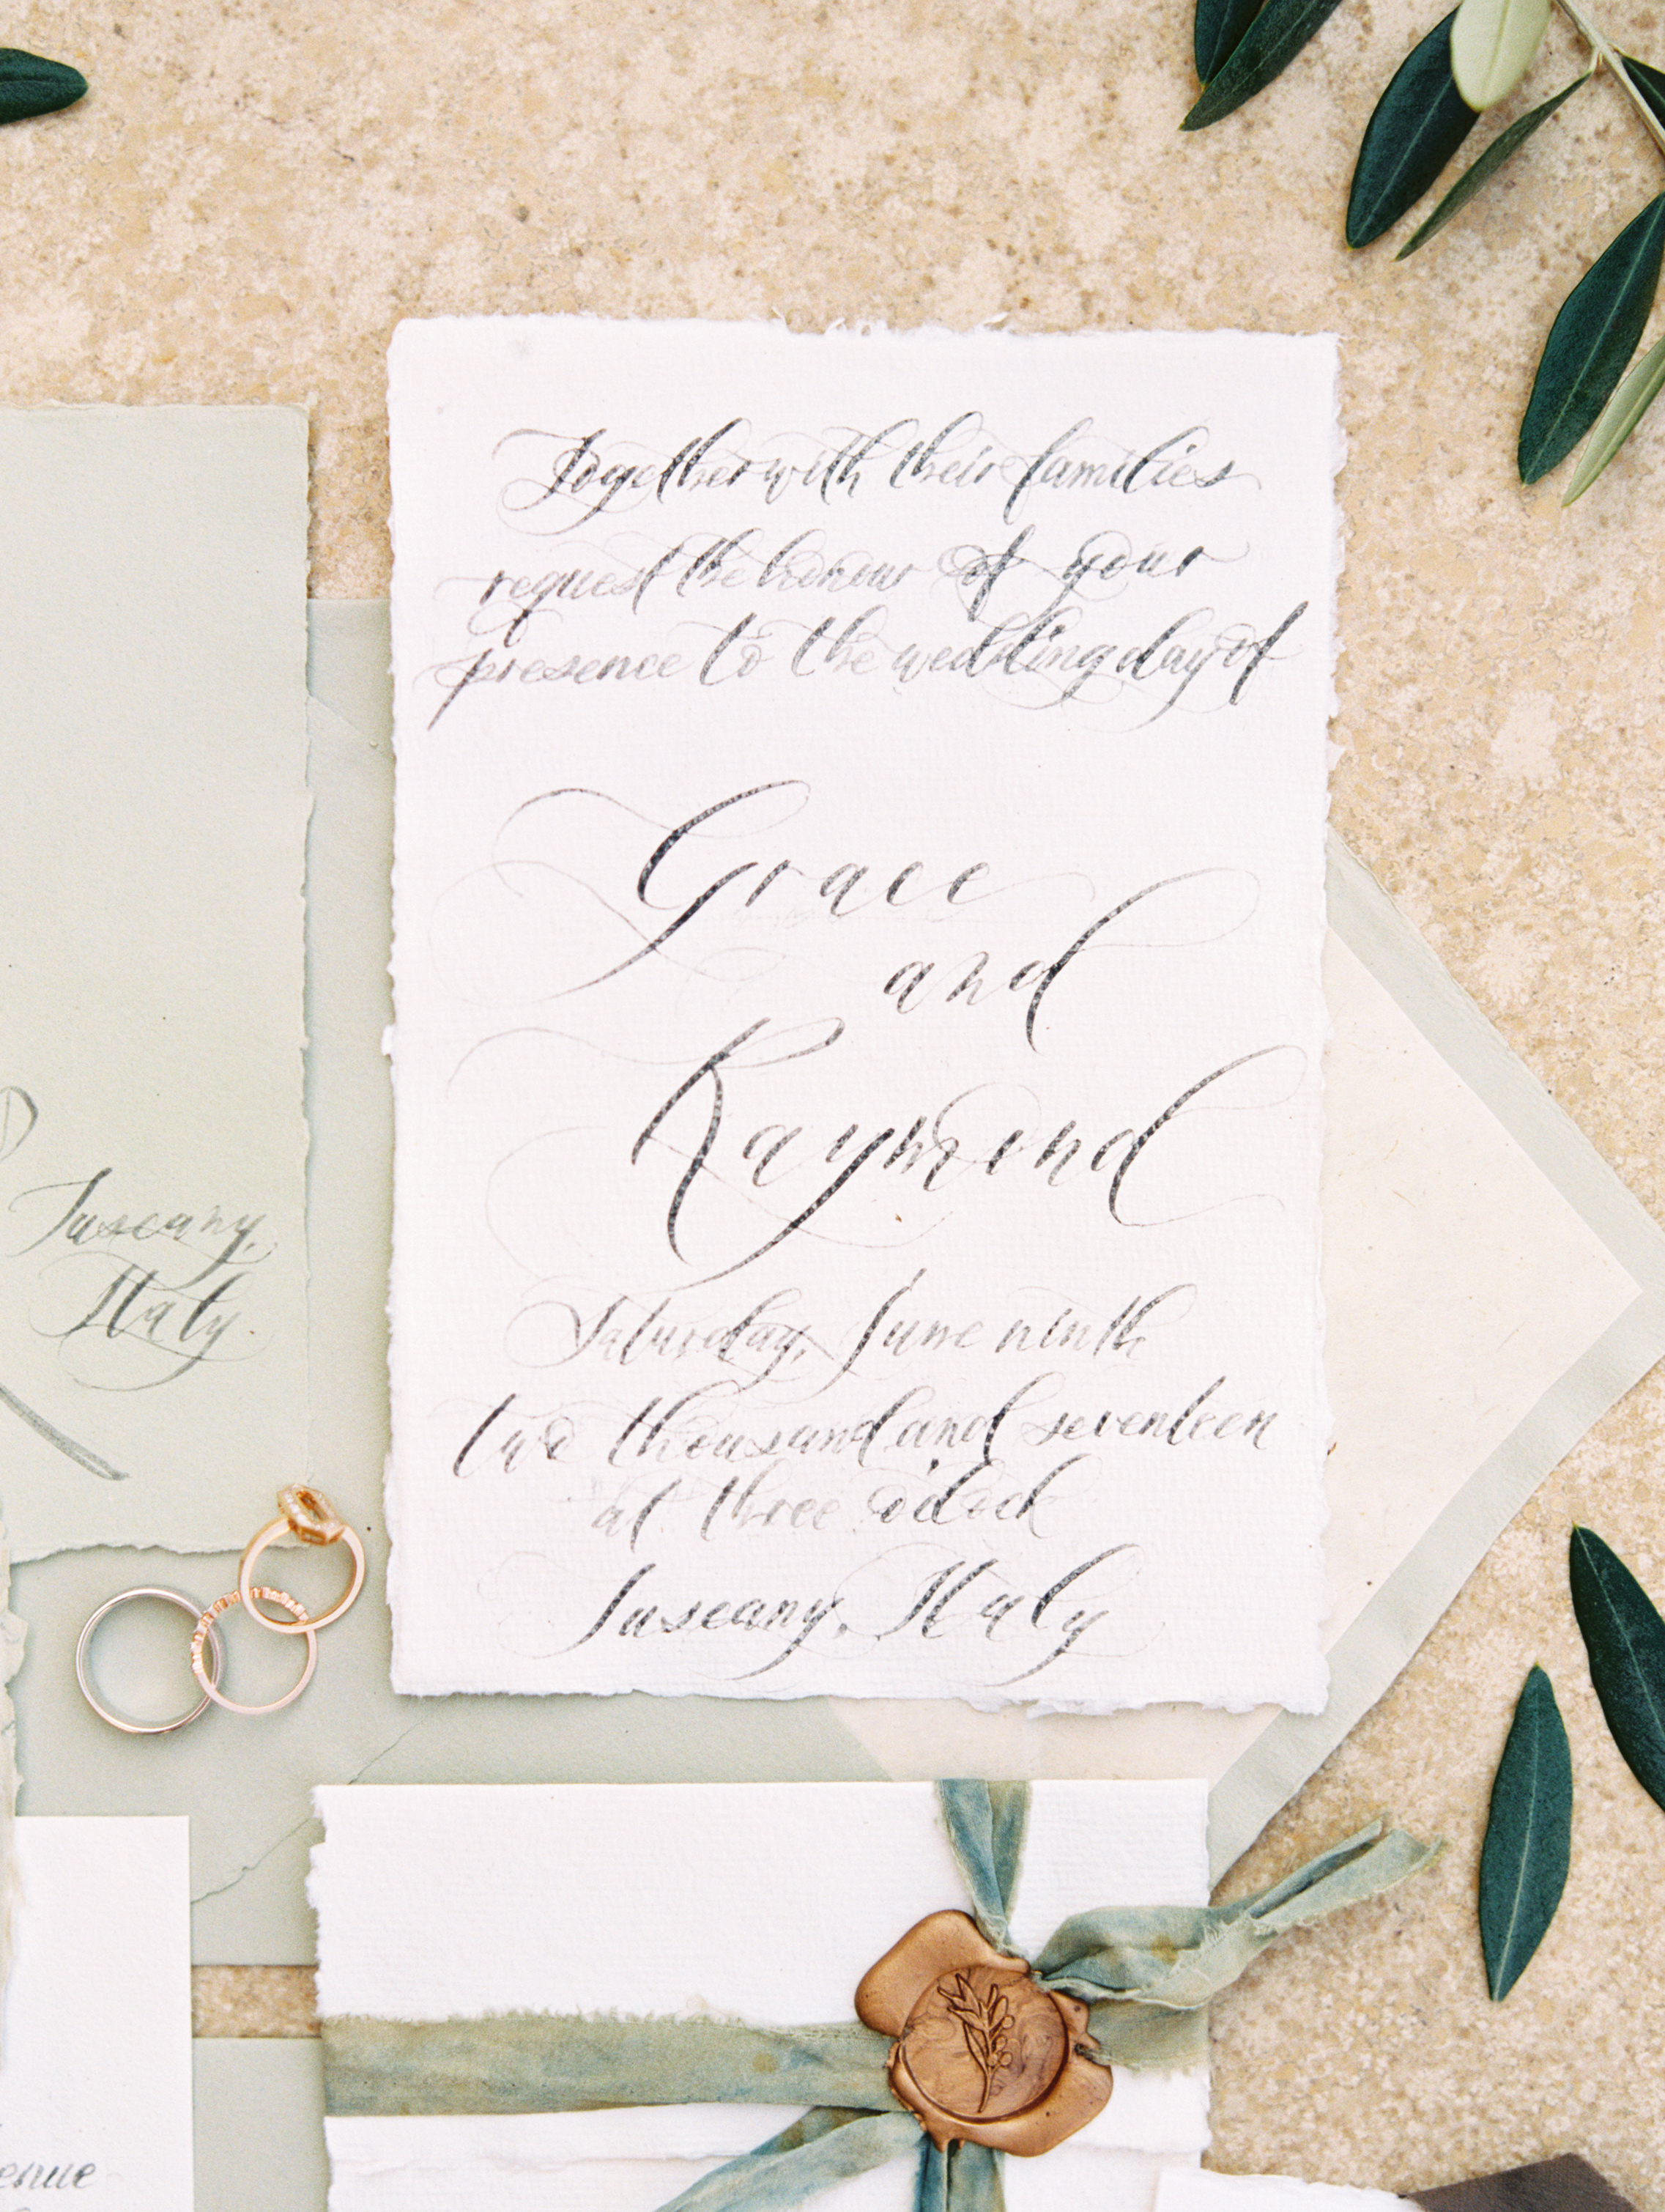 Together with their families
request the honour of your
presence to the wedding day of
Grace
and
Raymond
Saturday, June ninth
two thousand and seventeen
at three o'clock
Tuscany, Italy
Tuscany,
Italy.
enue